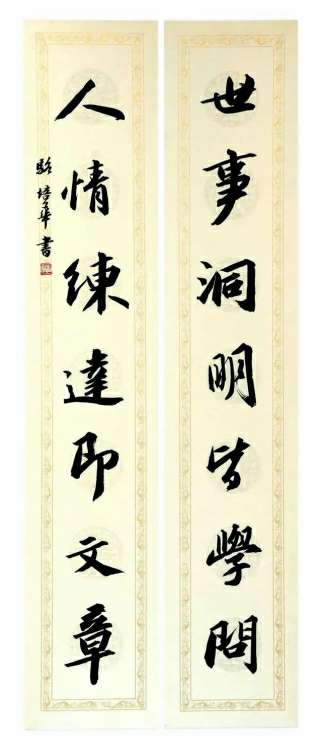 世事洞明皆學問
人情練達即文章
駱培華書